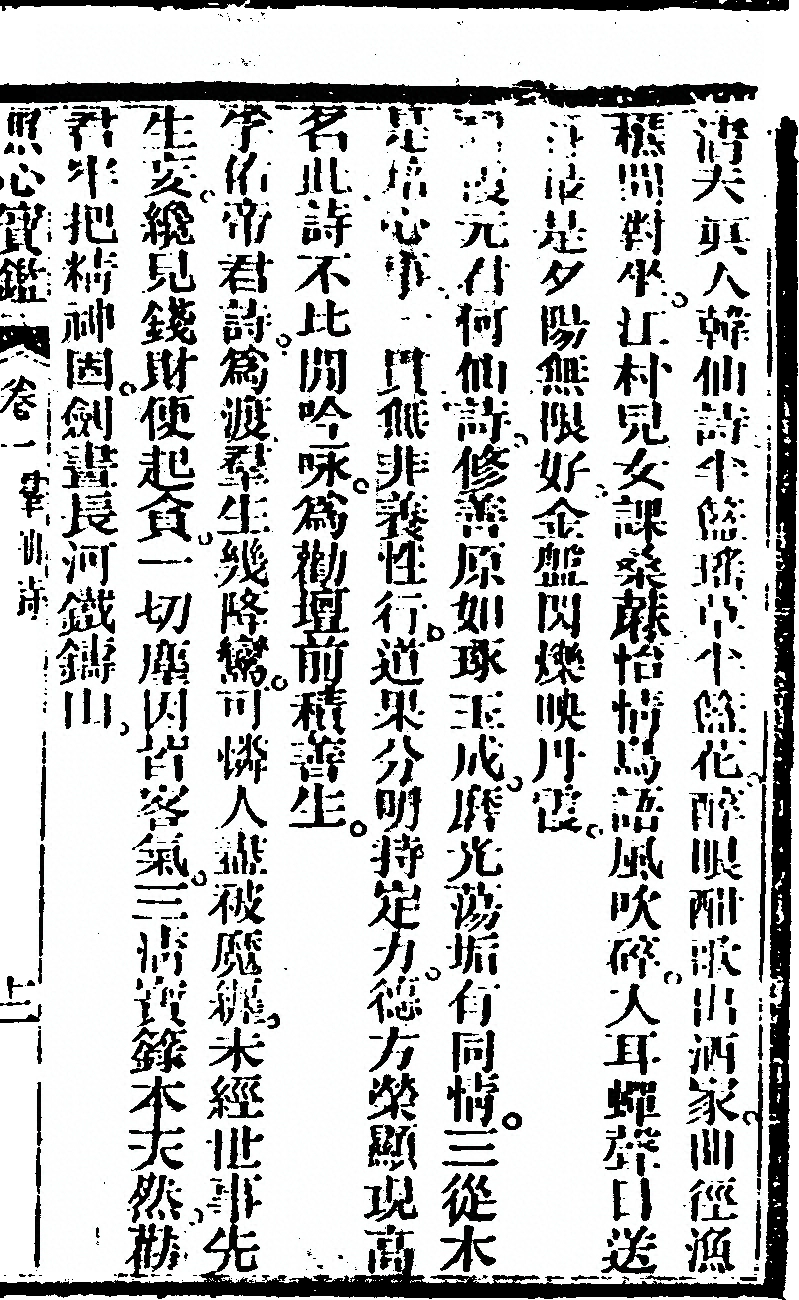 清夫真人韓仙詩半籃瑤草半籃花醉眼酣歌出酒家曲徑漁
樵閒對坐江村兒女課桑蔴怡情鳥語風吹碎入耳蟬聲日送
最是夕陽無限好金盤閃爍映丹霞
元君何仙詩修善原如琢玉成磨光蕩垢有同情三從本
是培心事一貫無非養性行道果分明持定力德方榮顯現高
名此詩不比閒吟咏爲勸壇前積善生
孚佑帝君詩爲渡羣生幾降鸞可憐人盡被魔纏未經世事先
生妄纔見錢財便起貪一切塵因皆客氣三清寶籙本天然勸
君牢把精神固劍畫長河鐵鑄山
照心寶鑑 卷一 羣仙詩 上